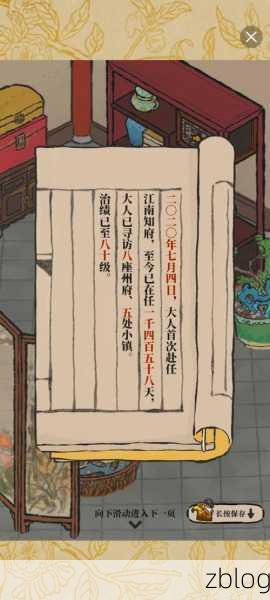 二〇二〇年七月四日，大人首次赴任
江南知府，至今已在任一千四百五十八天，
大人已寻访八座州府、五处小镇。
治绩已至八十级。
向下滑动进入下一页
长按保存
zblog